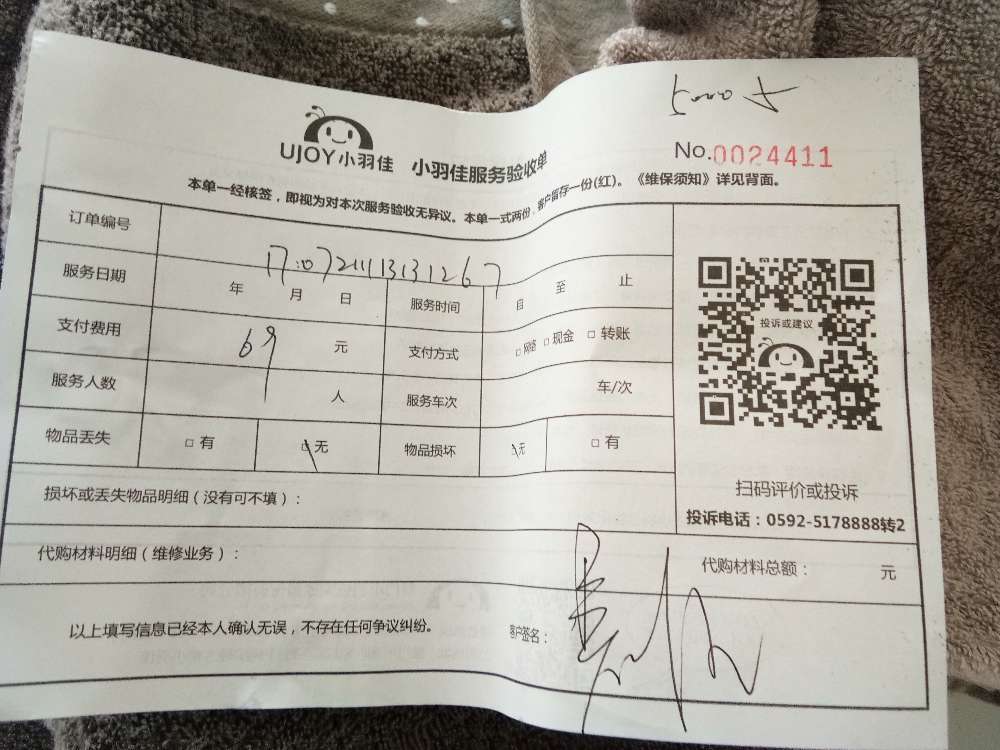 UJOY小羽佳 小羽佳服务验收单 No.0024411
本单一经核签，即视为对本次服务验收无异议。本单一式两份，客户留存一份(红)。《维保须知》详见背面。
订单编号
服务日期 年 月 日 服务时间 自 至 止
支付费用 69 元 支付方式 □网络 □现金 □转账
服务人数 1 人 服务车次 车/次
物品丢失 □有 □无 物品损坏 □无 □有
投诉或建议
扫码评价或投诉
投诉电话：0592-5178888转2
损坏或丢失物品明细（没有可不填）：
代购材料明细（维修业务）： 代购材料总额： 元
以上填写信息已经本人确认无误，不存在任何争议纠纷。 客户签名：